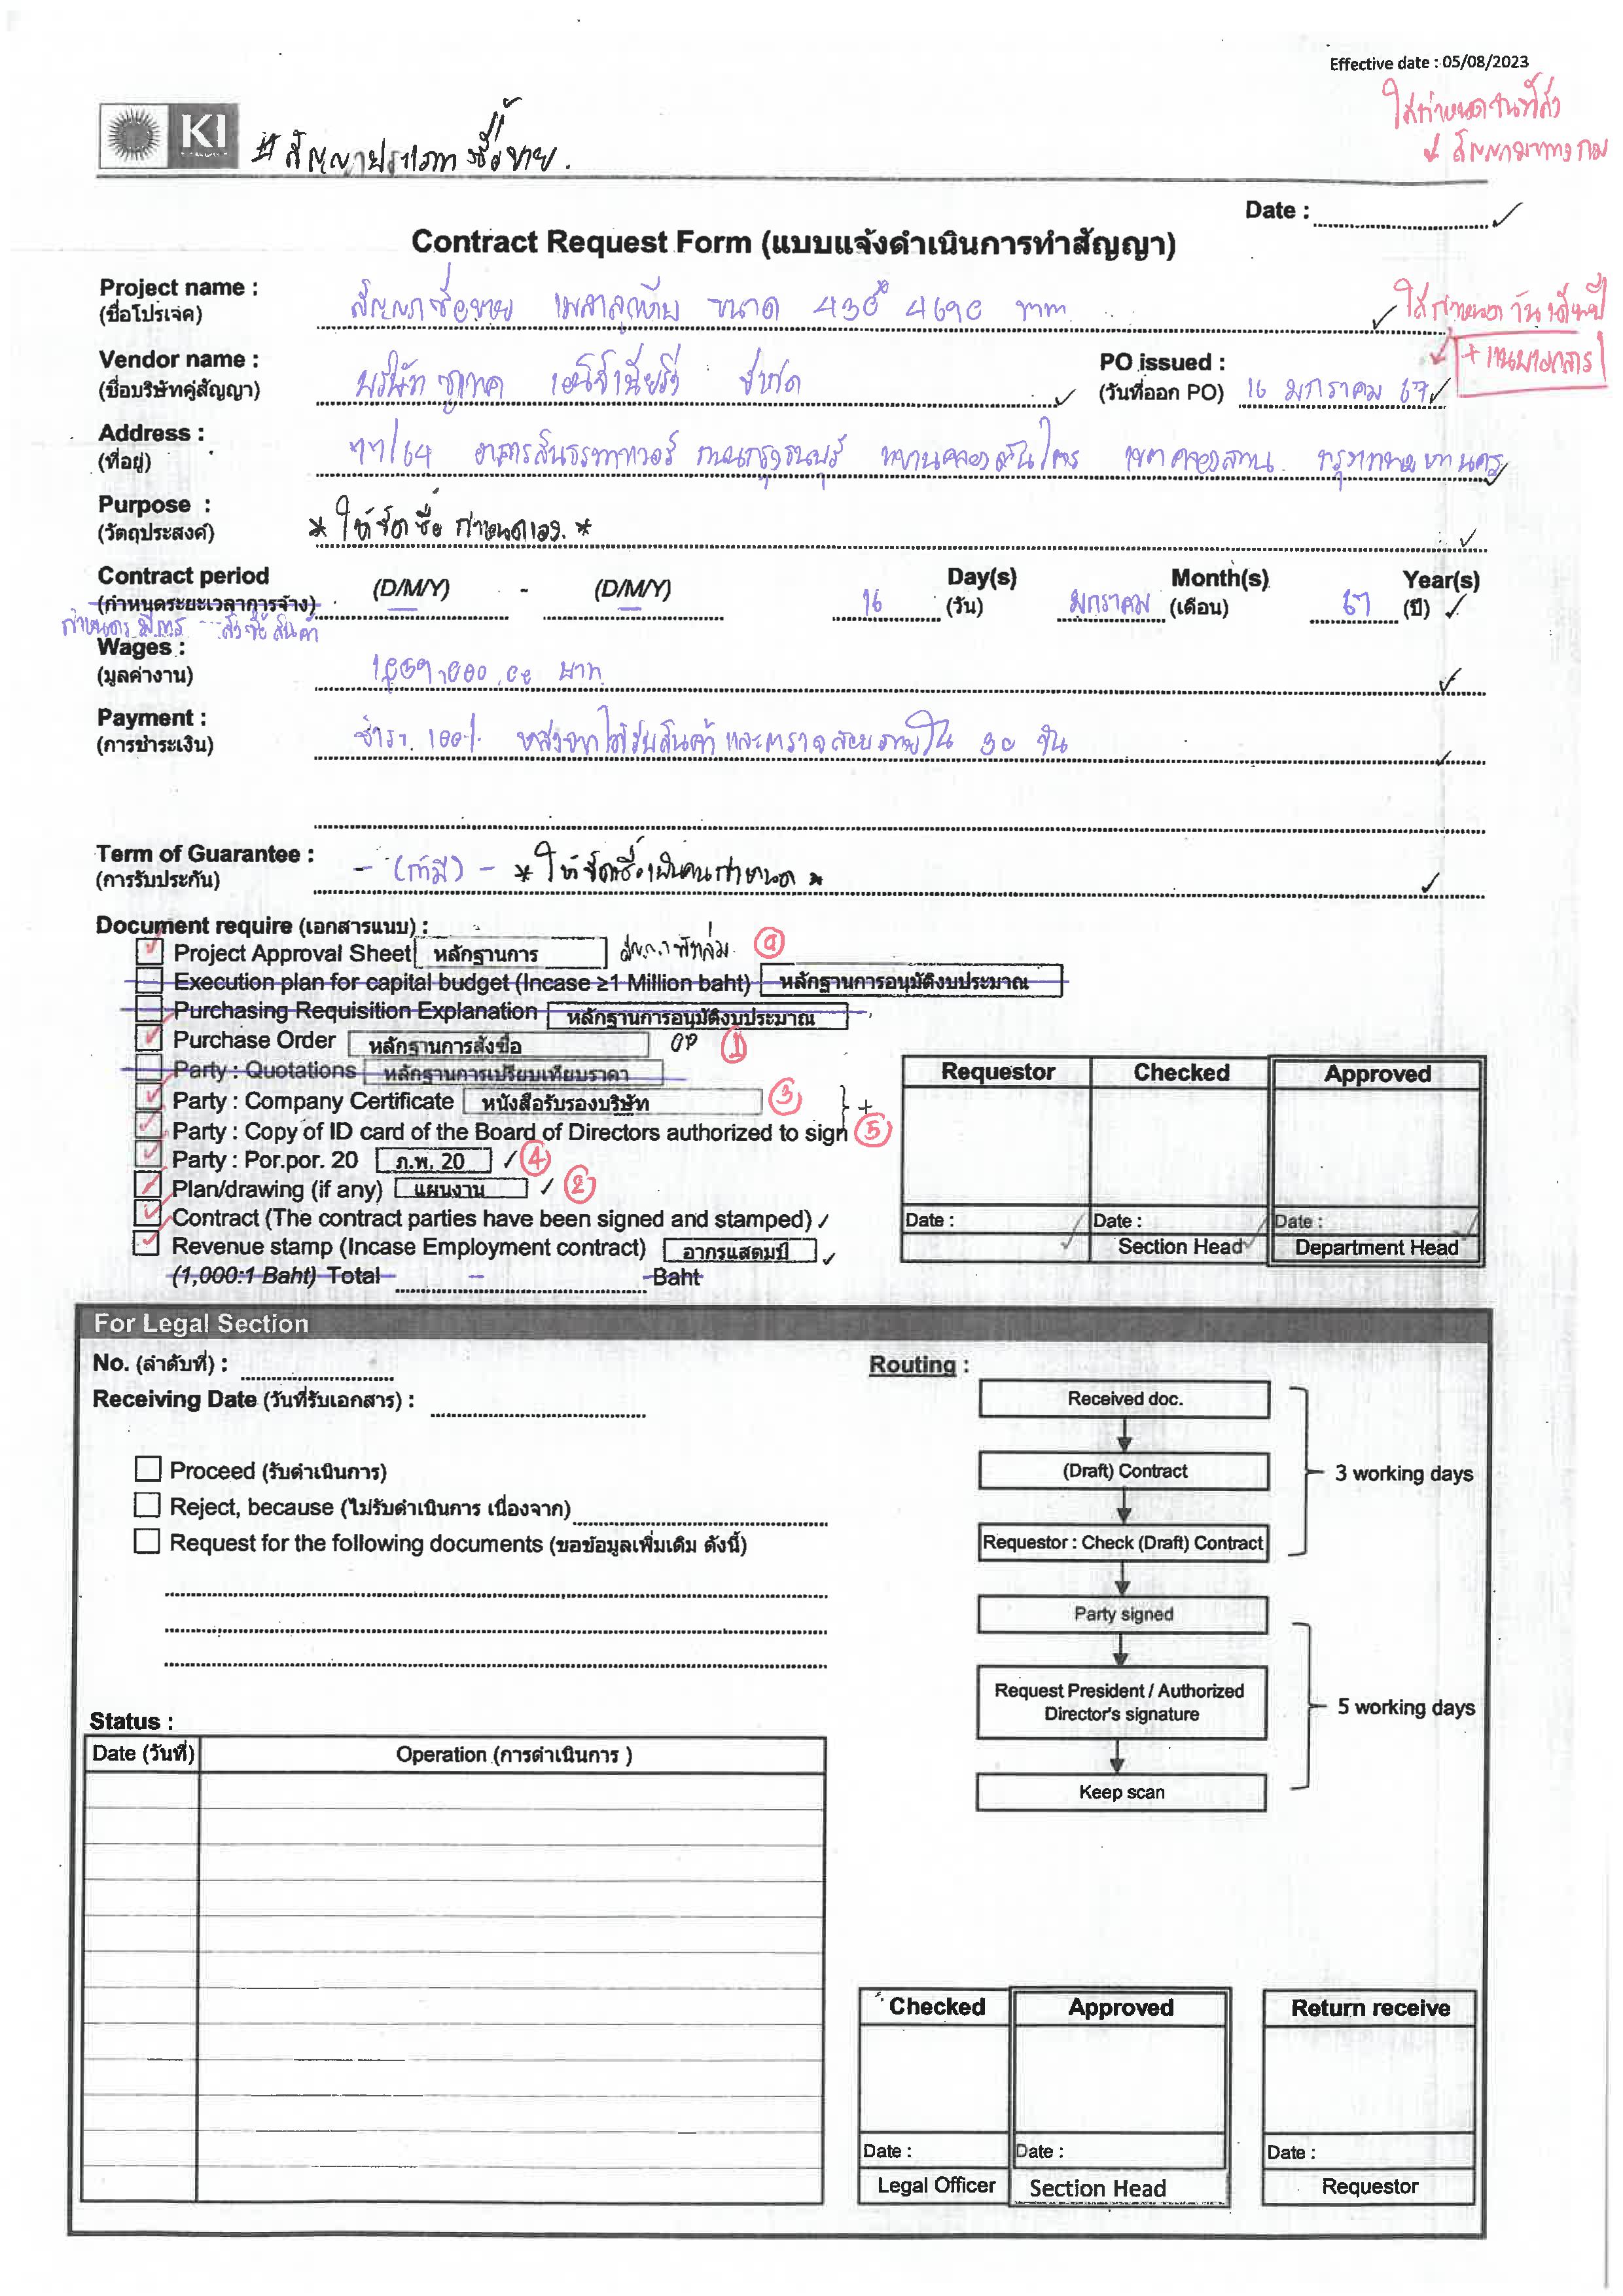 Effective date : 05/08/2023
ใส่กำหนดวันที่ส่ง
KI
# สัญญาประเภท ซื้อขาย.
Date :
Contract Request Form (แบบแจ้งดำเนินการทำสัญญา)
Project name :
(ชื่อโปรเจค) สัญญาซื้อขาย เพลาลูกหีบ ขนาด 430* 4690 mm.
ใส่กำหนด วัน เดือน ปี
Vendor name :
(ชื่อบริษัทคู่สัญญา) บริษัท เอ็นจิเนียริ่ง จำกัด
PO issued :
(วันที่ออก PO) 16 มกราคม 67
Address :
(ที่อยู่) 77/64 อาคารสินธรทาวเวอร์ ถนนกรุงธนบุรี คลองต้นไทร เขตคลองสาน กรุงเทพมหานคร
Purpose :
(วัตถุประสงค์) * ให้จัดซื้อ กำหนดเอง. *
Contract period (D/M/Y) - (D/M/Y) Day(s) Month(s) Year(s)
(กำหนดระยะเวลาการจ้าง) 16 (วัน) มกราคม (เดือน) 67 (ปี)
สั่งซื้อ สินค้า
Wages :
(มูลค่างาน) บาท
Payment :
(การชำระเงิน) ชำระ 100% หลังจากได้รับสินค้า และตรวจสอบภายใน 30 วัน
Term of Guarantee :
(การรับประกัน) - (ถ้ามี) - * ให้จัดซื้อเป็นคนกำหนด *
Document require (เอกสารแนบ) :
Project Approval Sheet หลักฐานการ
Execution plan for capital budget (Incase ≥1 Million baht) หลักฐานการอนุมัติงบประมาณ
Purchasing Requisition Explanation หลักฐานการอนุมัติงบประมาณ
Purchase Order หลักฐานการสั่งซื้อ OP 1
Party : Quotations หลักฐานการเปรียบเทียบราคา
Party : Company Certificate หนังสือรับรองบริษัท 3 +
Party : Copy of ID card of the Board of Directors authorized to sign 5
Party : Por.por. 20 ภ.พ. 20 4
Plan/drawing (if any) แผนงาน 2
Contract (The contract parties have been signed and stamped)
Revenue stamp (Incase Employment contract) อากรแสตมป์
(1,000:1 Baht) Total - Baht
Requestor Checked Approved
Date : Date : Date :
Section Head Department Head
For Legal Section
No. (ลำดับที่) :
Receiving Date (วันที่รับเอกสาร) :
Proceed (รับดำเนินการ)
Reject, because (ไม่รับดำเนินการ เนื่องจาก)
Request for the following documents (ขอข้อมูลเพิ่มเติม ดังนี้)
Routing :
Received doc.
(Draft) Contract
3 working days
Requestor : Check (Draft) Contract
Party signed
Request President / Authorized
Director's signature
5 working days
Keep scan
Status :
Date (วันที่) Operation (การดำเนินการ )
Checked Approved Return receive
Date : Date : Date :
Legal Officer Section Head Requestor